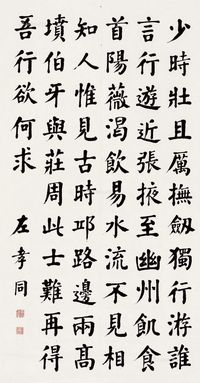 少時壯且厲撫劔獨行游誰
言行遊近張掖至幽州飢食
首陽薇渴飲易水流不見相
知人惟見古時邱路邊兩高
墳伯牙與莊周此士難再得
吾行欲何求
左孝同